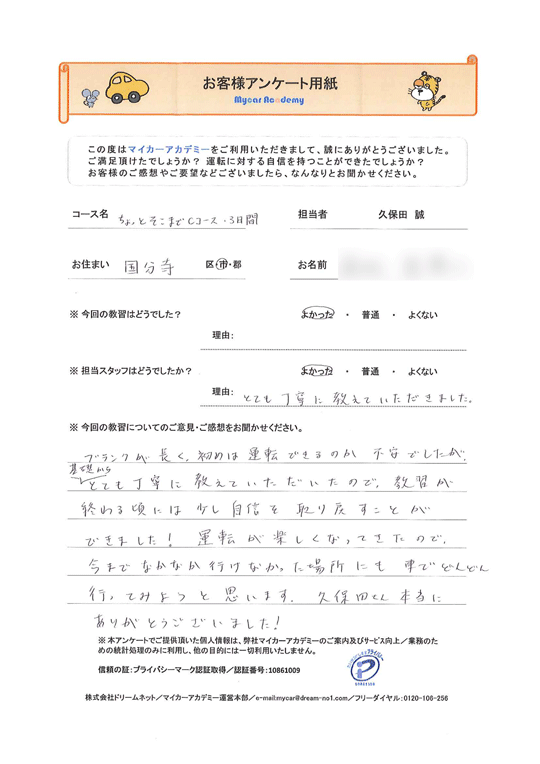 お客様アンケート用紙
Mycar Academy
この度はマイカーアカデミーをご利用いただきまして、誠にありがとうございました。
ご満足頂けたでしょうか？ 運転に対する自信を持つことができたでしょうか？
お客様のご感想やご要望などございましたら、なんなりとお聞かせください。
コース名 ちょっとそこまでCコース・3日間 担当者 久保田 誠
お住まい 国分寺 区・市・郡 お名前
※ 今回の教習はどうでした？ よかった ・ 普通 ・ よくない
理由：
※ 担当スタッフはどうでしたか？ よかった ・ 普通 ・ よくない
理由： とても丁寧に教えていただきました。
※ 今回の教習についてのご意見・ご感想をお聞かせください。
ブランクが長く、初めは運転できるのか不安でしたが、
基礎から
とても丁寧に教えていただいたので、教習が
終わる頃には少し自信を取り戻すことが
できました！ 運転が楽しくなってきたので、
今までなかなか行けなかった場所にも車でどんどん
行ってみようと思います。久保田さん本当に
ありがとうございました！
※ 本アンケートでご提供頂いた個人情報は、弊社マイカーアカデミーのご案内及びサービス向上／業務のた
めの統計処理のみに利用し、他の目的には一切利用いたしません。
信頼の証：プライバシーマーク認証取得／認証番号：10861009
株式会社ドリームネット／マイカーアカデミー運営本部／e-mail:mycar@dream-no1.com／フリーダイヤル：0120-106-256